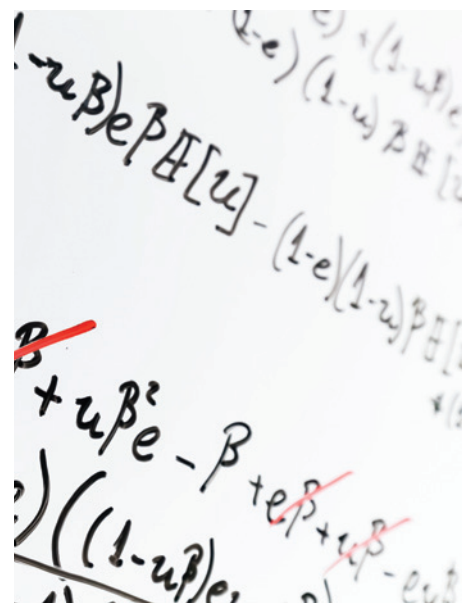 -e) +(1-uβ)e
(1-e) (1-u) β𝔼[u
(1-uβ)eβ𝔼[u] - (1-e)(1-u)β𝔼[
+(1
β
+ uβ²e - β + eβ + uβ - euβ
e)((1-uβ)e